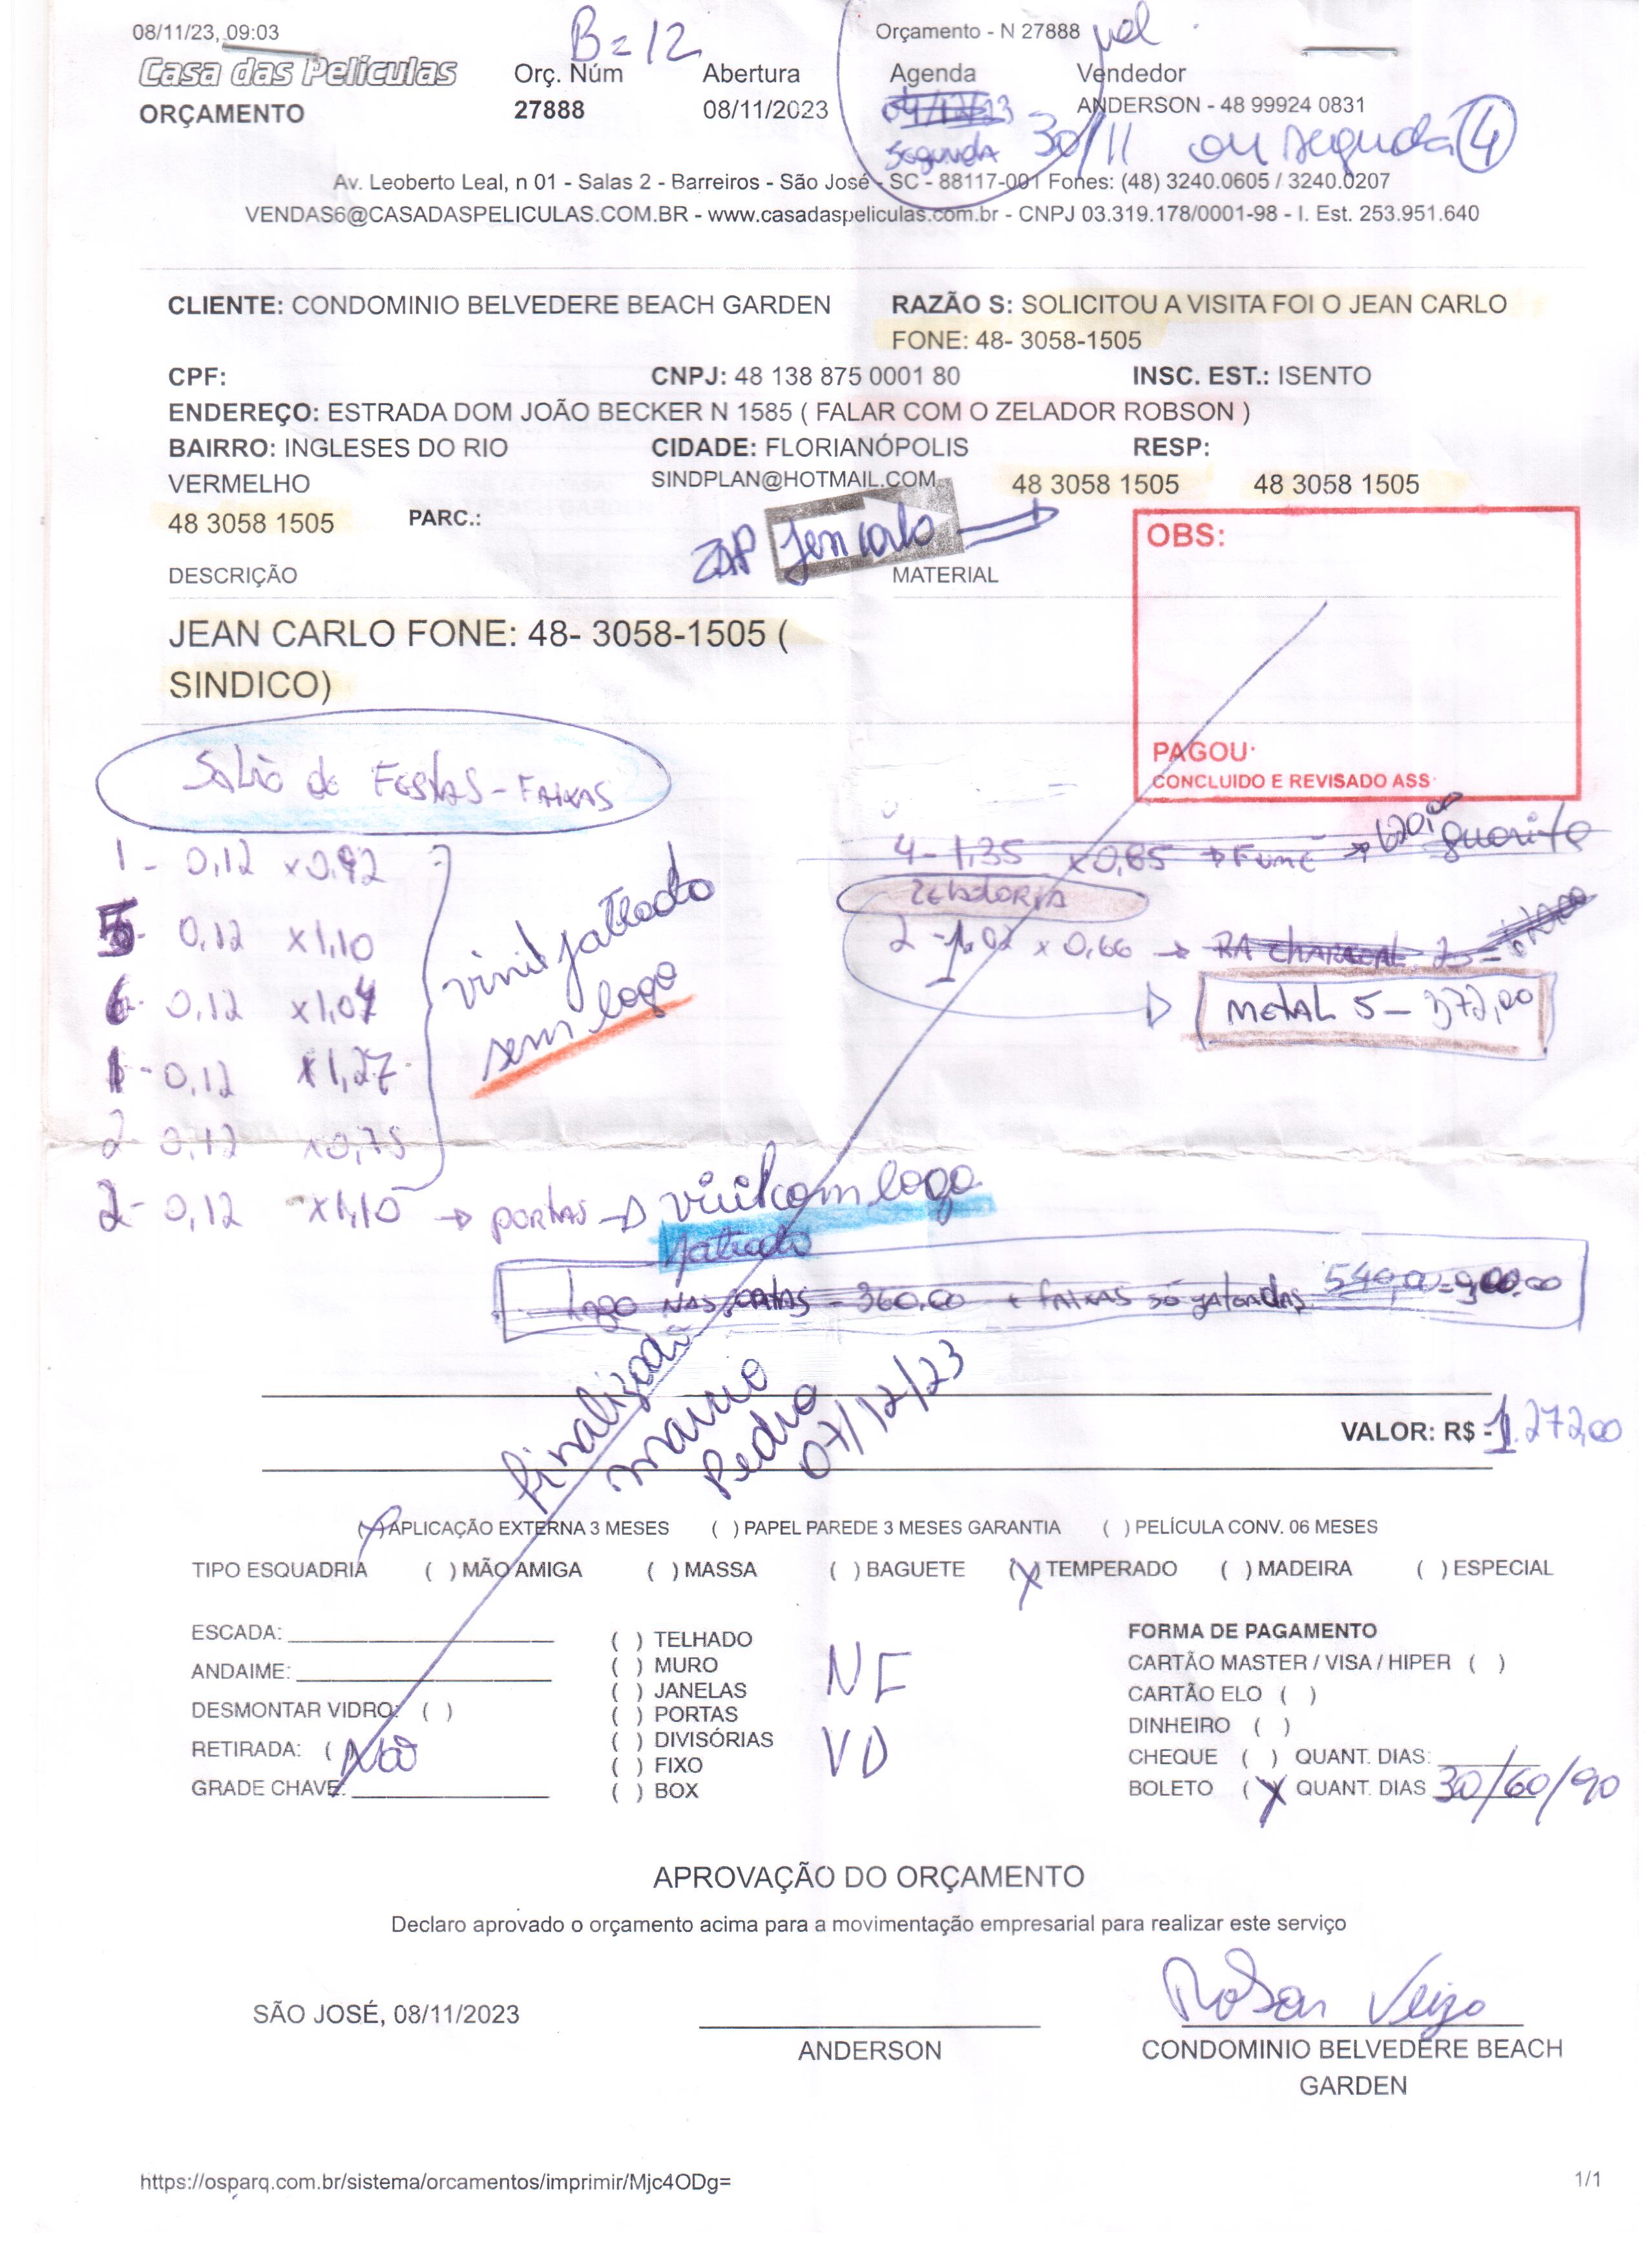 08/11/23, 09:03
B=12
Orçamento - N 27888
Casa das Películas
Orç. Núm
Abertura
Agenda
Vendedor
ORÇAMENTO
27888
08/11/2023
04/12/23
ANDERSON - 48 99924 0831
segunda 30/11 ou segunda 4
Av. Leoberto Leal, n 01 - Salas 2 - Barreiros - São José - SC - 88117-001 Fones: (48) 3240.0605 / 3240.0207
VENDAS6@CASADASPELICULAS.COM.BR - www.casadaspeliculas.com.br - CNPJ 03.319.178/0001-98 - I. Est. 253.951.640
CLIENTE: CONDOMINIO BELVEDERE BEACH GARDEN
RAZÃO S: SOLICITOU A VISITA FOI O JEAN CARLO
FONE: 48- 3058-1505
CPF:
CNPJ: 48 138 875 0001 80
INSC. EST.: ISENTO
ENDEREÇO: ESTRADA DOM JOÃO BECKER N 1585 ( FALAR COM O ZELADOR ROBSON )
BAIRRO: INGLESES DO RIO
CIDADE: FLORIANÓPOLIS
RESP:
VERMELHO
SINDPLAN@HOTMAIL.COM
48 3058 1505
48 3058 1505
48 3058 1505
PARC.:
ZAP Jean Carlo
OBS:
DESCRIÇÃO
MATERIAL
JEAN CARLO FONE: 48- 3058-1505 (
SINDICO)
PAGOU
CONCLUIDO E REVISADO ASS
Salão de Festas - Faixas
1 - 0,12 x 0,92
5 - 0,12 x 1,10
6 - 0,12 x 1,04
1 - 0,12 x 1,27
2 - 0,12 x 0,75
vinil jateado
sem logo
2 - 0,12 x 1,10 → portas → vinil com logo
jateado
4 - 1,35 x 0,85 → Fumê → guarita
ZELADORIA
2 - 1,02 x 0,66 →
METAL 5 - 372,00
Logo nas portas - 360,00 + faixas só jateadas 540,00 = 900,00
finalizado
Pedro
07/12/23
VALOR: R$ - 1.272,00
(X) APLICAÇÃO EXTERNA 3 MESES ( ) PAPEL PAREDE 3 MESES GARANTIA ( ) PELÍCULA CONV. 06 MESES
TIPO ESQUADRIA ( ) MÃO AMIGA ( ) MASSA ( ) BAGUETE (X) TEMPERADO ( ) MADEIRA ( ) ESPECIAL
ESCADA:
ANDAIME:
DESMONTAR VIDRO: ( )
RETIRADA: ( ) Não
GRADE CHAVE:
( ) TELHADO
( ) MURO
( ) JANELAS
( ) PORTAS
( ) DIVISÓRIAS
( ) FIXO
( ) BOX
NF
VD
FORMA DE PAGAMENTO
CARTÃO MASTER / VISA / HIPER ( )
CARTÃO ELO ( )
DINHEIRO ( )
CHEQUE ( ) QUANT. DIAS:
BOLETO (X) QUANT. DIAS 30/60/90
APROVAÇÃO DO ORÇAMENTO
Declaro aprovado o orçamento acima para a movimentação empresarial para realizar este serviço
SÃO JOSÉ, 08/11/2023
ANDERSON
CONDOMINIO BELVEDERE BEACH
GARDEN
https://osparq.com.br/sistema/orcamentos/imprimir/Mjc4ODg=
1/1